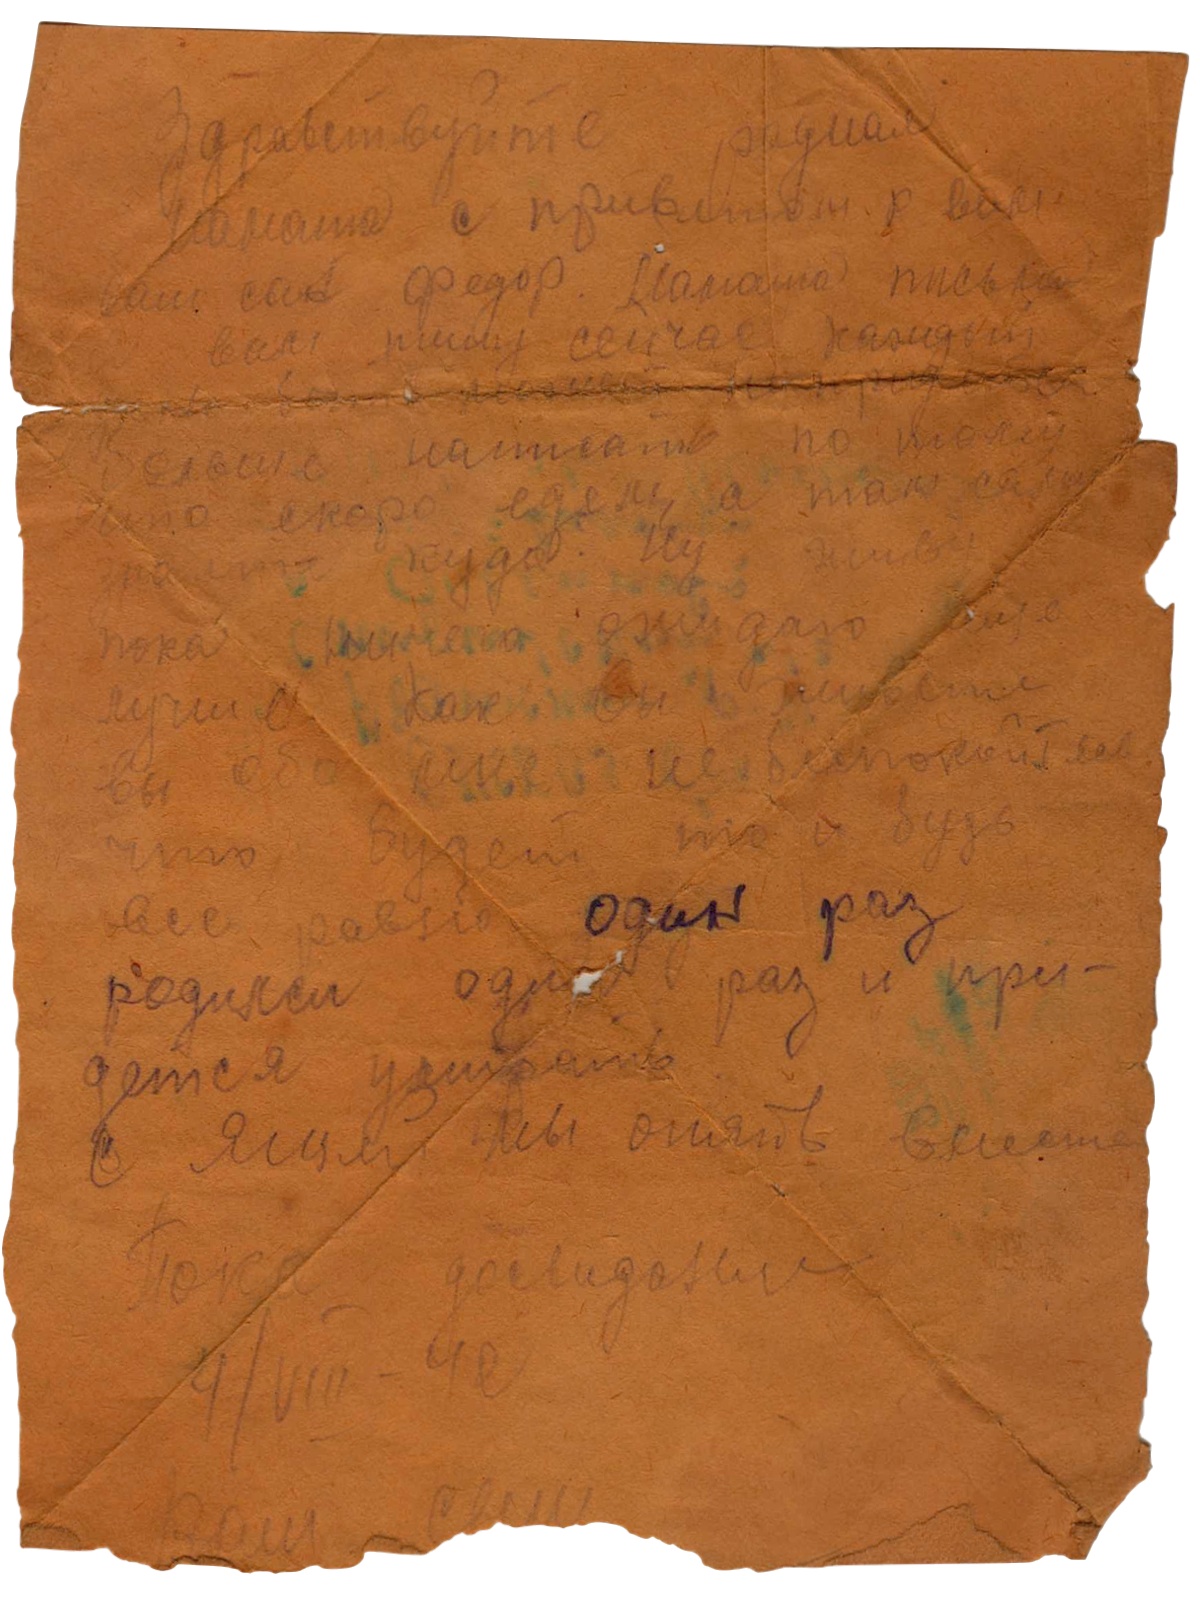 Здравствуйте родная
Мамаша с приветом к вам
ваш сын Федор. Мамаша письма
вам пишу сейчас каждый
больше написать по тому
что скоро едем, а так сами
куда. Ну живу
пока ничего ожидаю еще
лучше. Как вы
вы обо мне не беспокойт
что будет то и будь
все равно один раз
родился один раз и при-
дется умирать.
с Яшей мы опять вместе
Пока досвидания
4/VIII-42
Ваш сын